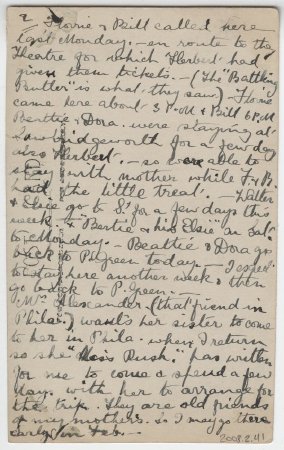 2 Florrie & Bill called here
last Monday. - en route to the
Theatre for which Herbert had
given them tickets. - (The "Battling
Butler" is what they saw) Florrie
came here about 3 P.M & Bill 6 P.M
Beattie & Dora were staying at
Sawbridgeworth for a few days
also Herbert - so were able to
stay with mother while F. & B.
had the little treat. Walter
& Elsie go to S. for a few days this
week & "Bertie & his Elsie" on Sat.
to Monday. - Beattie & Dora go
back to P. Green today - I expect
to stay here another week & then
go back to P. Green.
Mrs Alexander (that friend in
Phila.) wants her sister to come
to her in Phila. when I return
so she "Miss Rush" has written
for me to come & spend a few
days with her to arrange for
the trip. They are old friends
of my mothers. So I may go there
early in Feb -
2008.2.41